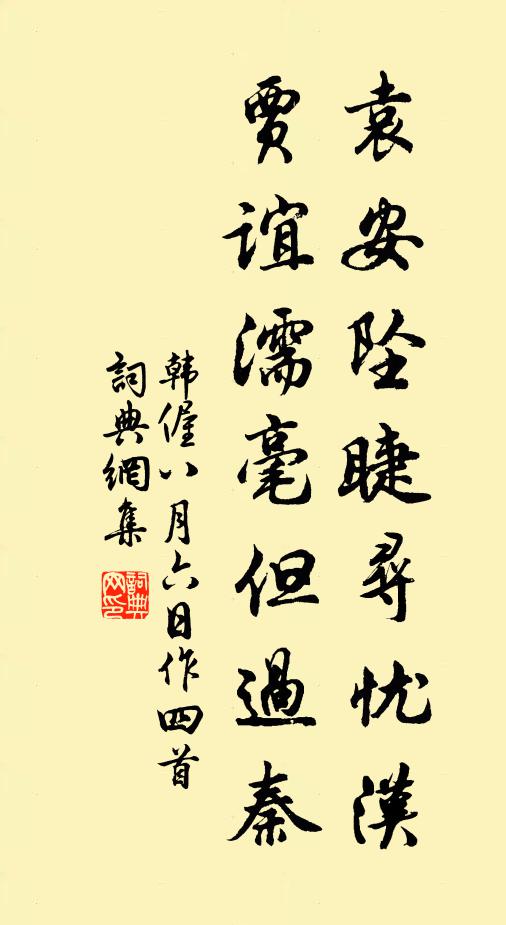 袁安坠睫尋忧漢
贾谊濡毫但過秦
韩偓八月六日作四首
詞典網集
詞典网印